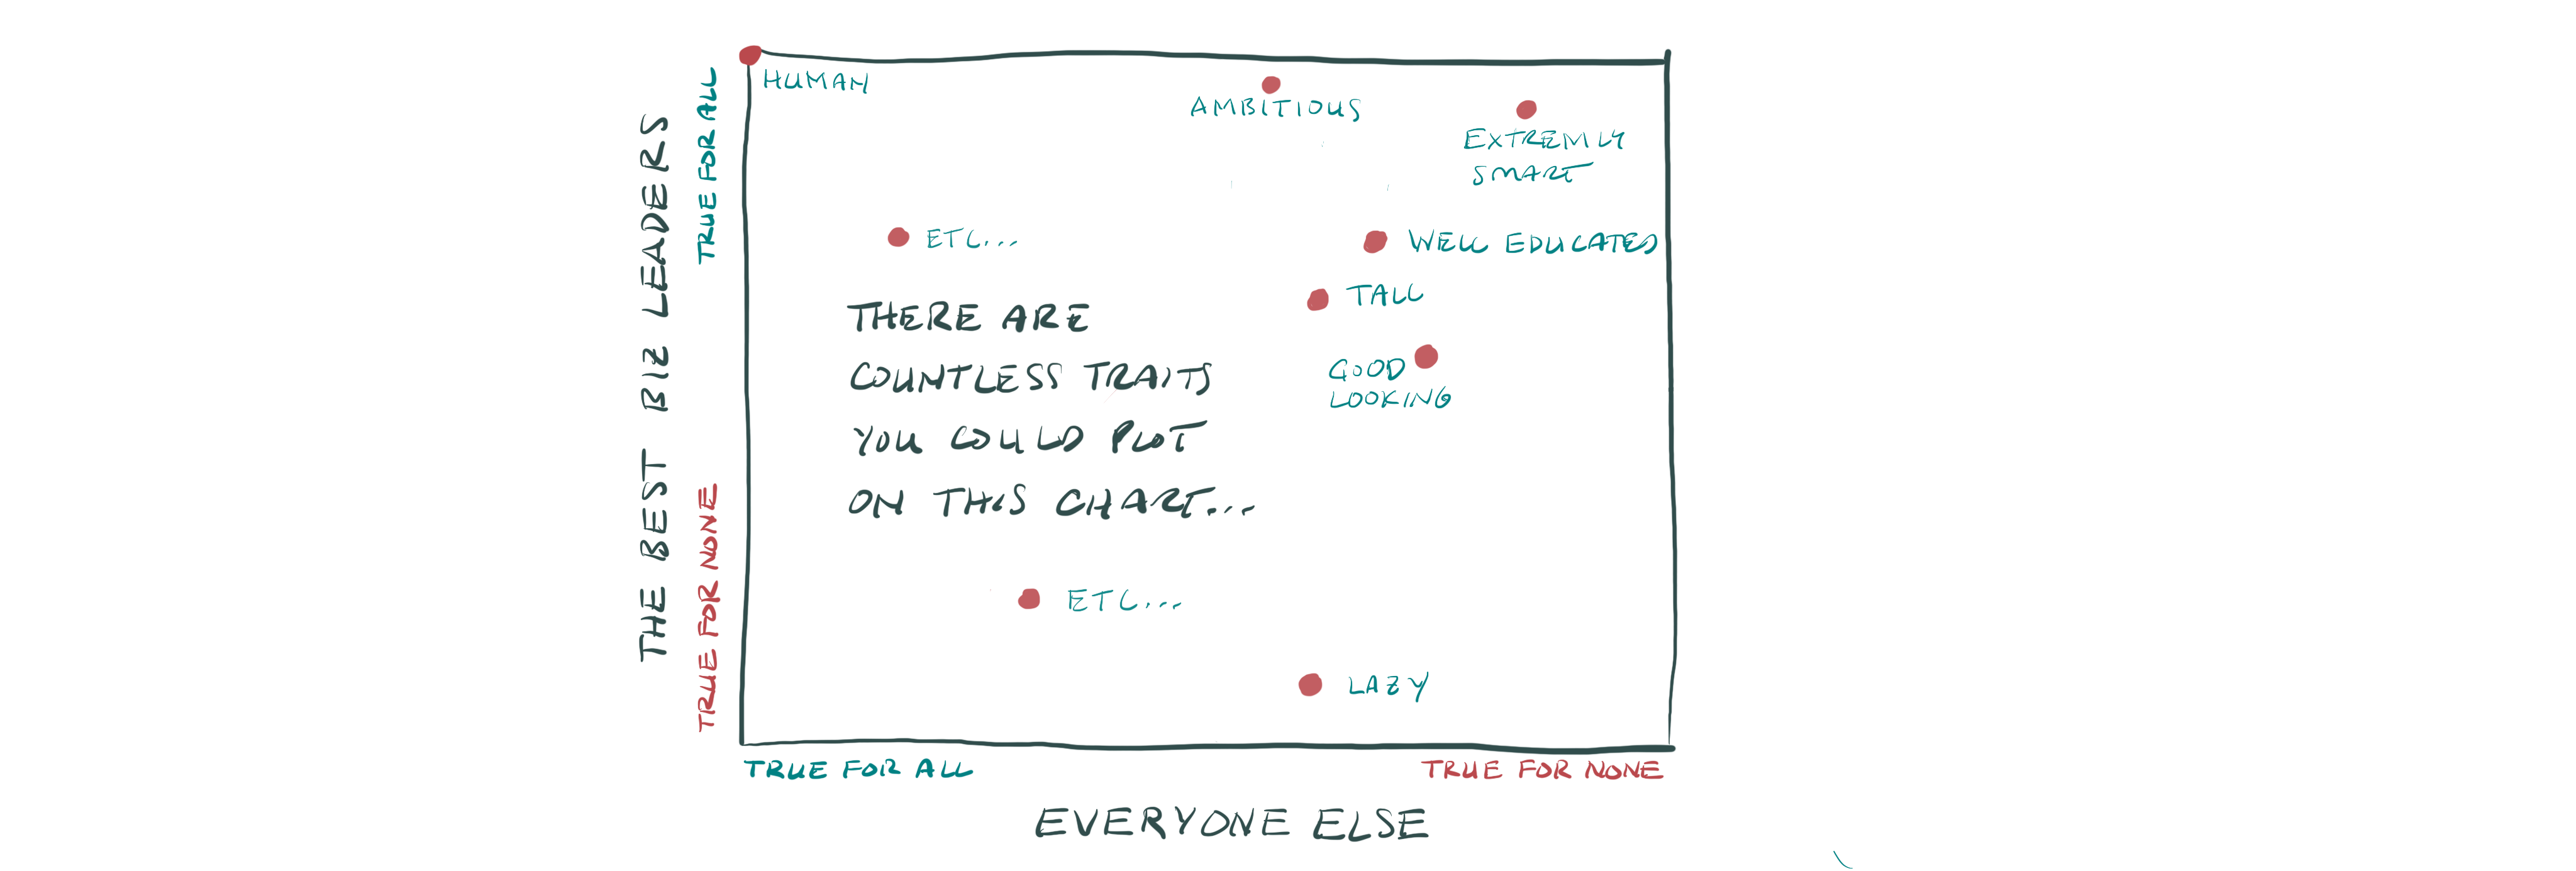 HUMAN
AMBITIOUS
EXTREMLY
SMART
ETC...
WELL EDUCATED
TALL
GOOD
LOOKING
THERE ARE
COUNTLESS TRAITS
YOU COULD PLOT
ON THIS CHART...
ETC...
LAZY
THE BEST BIZ LEADERS
TRUE FOR ALL
TRUE FOR NONE
TRUE FOR ALL
TRUE FOR NONE
EVERYONE ELSE